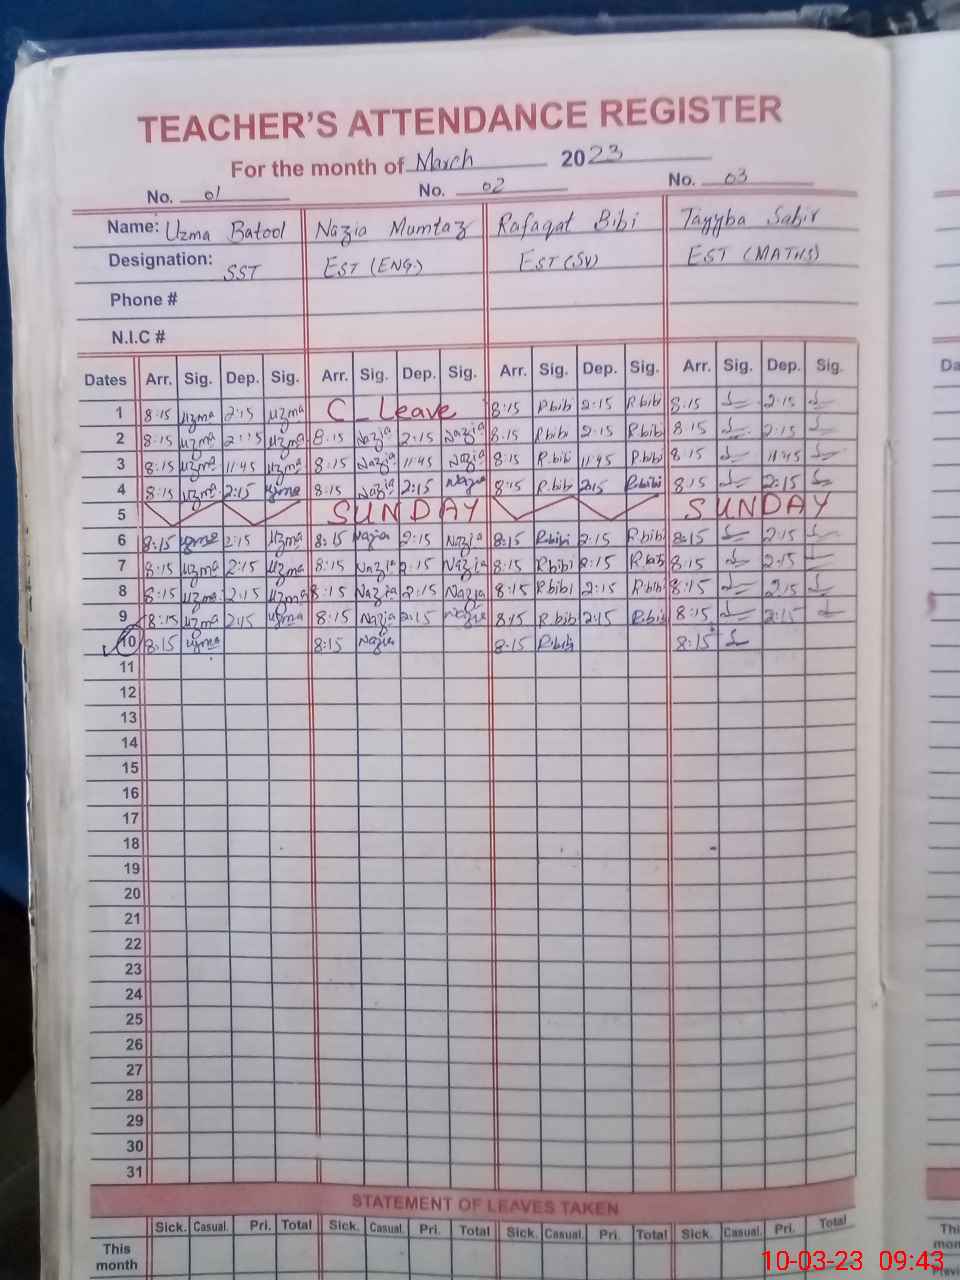 TEACHER'S ATTENDANCE REGISTER
For the month of March 2023
No. 01 No. 02 No. 03
Name: Uzma Batool Nazia Mumtaz Rafaqat Bibi Tayyba Sabir
Designation: SST EST (ENG.) EST (SV) EST (MATHS)
Phone #
N.I.C #
Dates Arr. Sig. Dep. Sig. Arr. Sig. Dep. Sig. Arr. Sig. Dep. Sig. Arr. Sig. Dep. Sig. Da
1 8:15 Uzma 2:15 Uzma C_Leave 8:15 R.bibi 2:15 R.bibi 8:15 2:15
2 8:15 Uzma 2:15 Uzma 8:15 Nazia 2:15 Nazia 8:15 R.bibi 2:15 R.bibi 8:15 2:15
3 8:15 Uzma 11:45 Uzma 8:15 Nazia 11:45 Nazia 8:15 R.bibi 11:45 R.bibi 8:15 11:45
4 8:15 Uzma 2:15 Uzma 8:15 Nazia 2:15 Nazia 8:15 R.bibi 2:15 R.bibi 8:15 2:15
5 SUNDAY SUNDAY
6 8:15 Uzma 2:15 Uzma 8:15 Nazia 2:15 Nazia 8:15 R.bibi 2:15 R.bibi 8:15 2:15
7 8:15 Uzma 2:15 Uzma 8:15 Nazia 2:15 Nazia 8:15 R.bibi 2:15 R.bibi 8:15 2:15
8 8:15 Uzma 2:15 Uzma 8:15 Nazia 2:15 Nazia 8:15 R.bibi 2:15 R.bibi 8:15 2:15
9 8:15 Uzma 2:15 Uzma 8:15 Nazia 2:15 Nazia 8:15 R.bibi 2:15 R.bibi 8:15 2:15
10 8:15 Uzma 8:15 Nazia 8:15 R.bibi 8:15
11
12
13
14
15
16
17
18
19
20
21
22
23
24
25
26
27
28
29
30
31
STATEMENT OF LEAVES TAKEN
Sick. Casual. Pri. Total Sick. Casual. Pri. Total Sick. Casual. Pri. Total Sick. Casual. Pri. Total
This
month
10-03-23 09:43